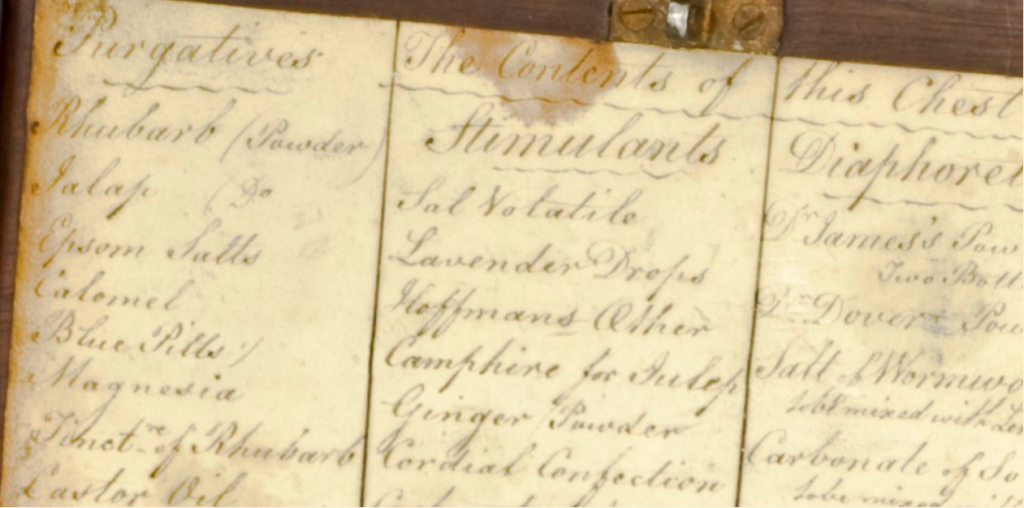 Purgatives
Rhubarb (Powder)
Jalap (Do
Epsom Salts
Calomel
Blue Pills
Magnesia
Tinctre of Rhubarb
Castor Oil
The Contents of this Chest
Stimulants
Sal Volatile
Lavender Drops
Hoffmans Æther
Camphire for Julep
Ginger (Powder
Cordial Confection
Diaphoret
Dr James's Pow
Two Bott
Dr Dovers Pow
Salt of Wormwo
to be mixed with Le
Carbonate of So
to be mixed